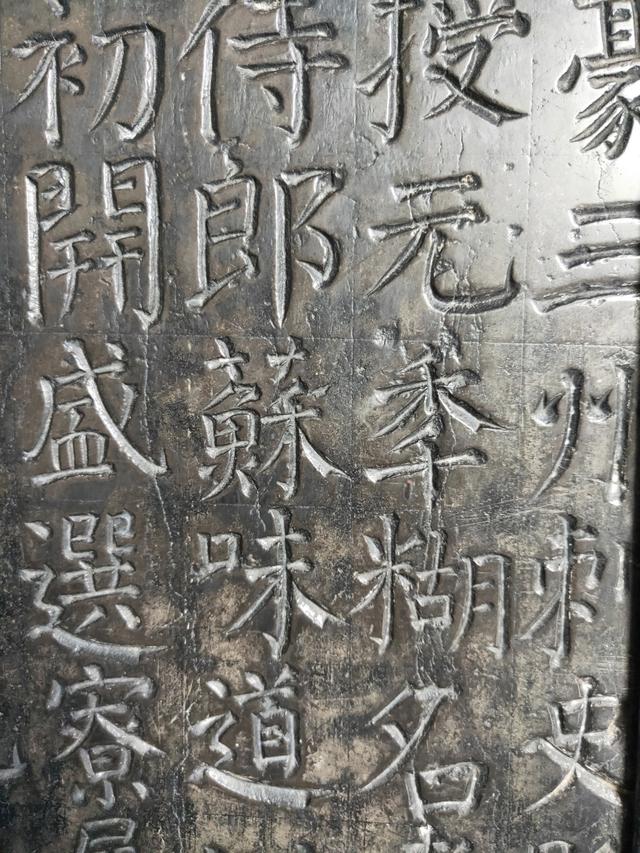 豪三州刺史
授元秊糊名
侍郎蘇味道
初開盛選寮